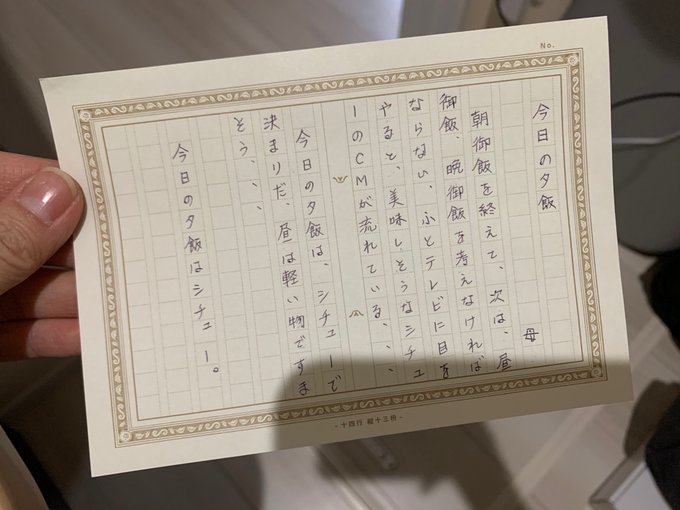 No.
今日の夕飯
母
朝御飯を終えて、次は、昼
御飯、晩御飯を考えなければ
ならない、ふとテレビに目を
やると、美味しそうなシチュ
ーのCMが流れている、、、
今日の夕飯は、シチューで
決まりだ、昼は軽い物ですま
そう、、、
今日の夕飯はシチュー。
-十四行 縦十三份-